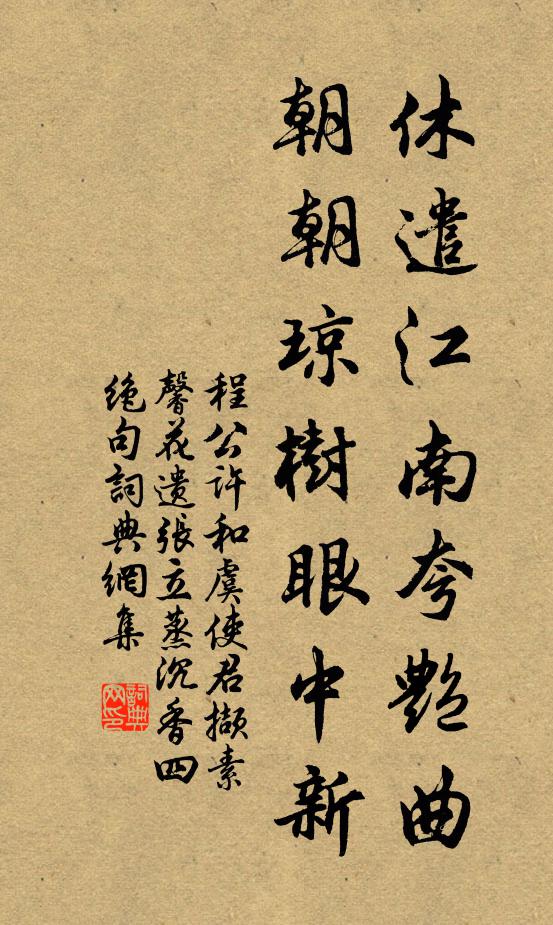 休遣江南夸艷曲
朝朝琼樹眼中新
程公许和虞使君撷素
馨花遗張立蒸沉香四
绝句詞典網集
詞典
网印